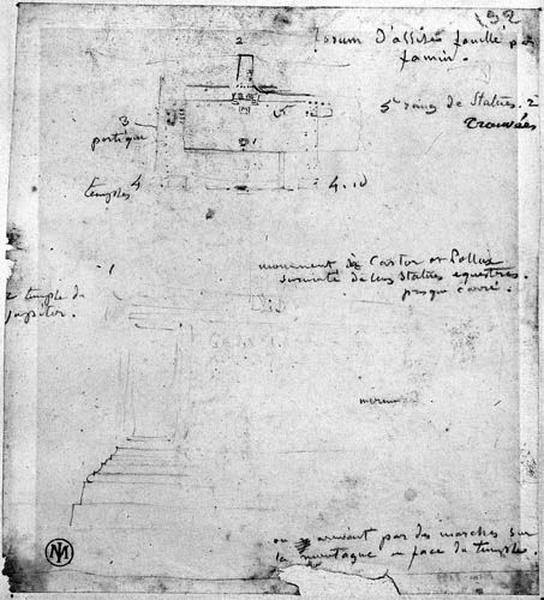 92
forum d'assise fouillé par
famin.
2
5 rang de Statues. 2
trouvées
3
portique
5
1
temples 4
4.10
1
monument de Castor et Pollux
surmonté de leurs Statues equestres.
presque carré.
2 temple de
jupiter.
on y arrivait par des marches sur
la montagne en face du temples.
IM